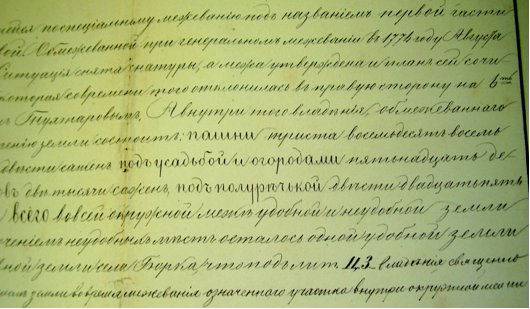 поспецiальному межеванiю подъ названiемъ первой части
Обмежеванной при генеральномъ межеванiи въ 1774 году Августа
Ситуацiя снята снатуры, а межа утверждена и планъ сей сочи
которая современи того отклонилась въ правую сторону на 6
А внутри того владѣнiя, обмежеваннаго
земли состоитъ: пашни триста восемьдесятъ восемь
двѣсти сажен подъ усадьбой и огородами пятьнадцать де
двѣ тысячи сажен, подъ полурѣчькой двѣсти двадцать пять
всего во всей окружной межѣ удобной и неудобной земли
неудобныхъ мѣстъ осталось одной удобной земли
ной земли села Борка, что подъ лит. 43 владѣнiя священно
земли во время межеванiя означеннаго участка внутри окружной межи